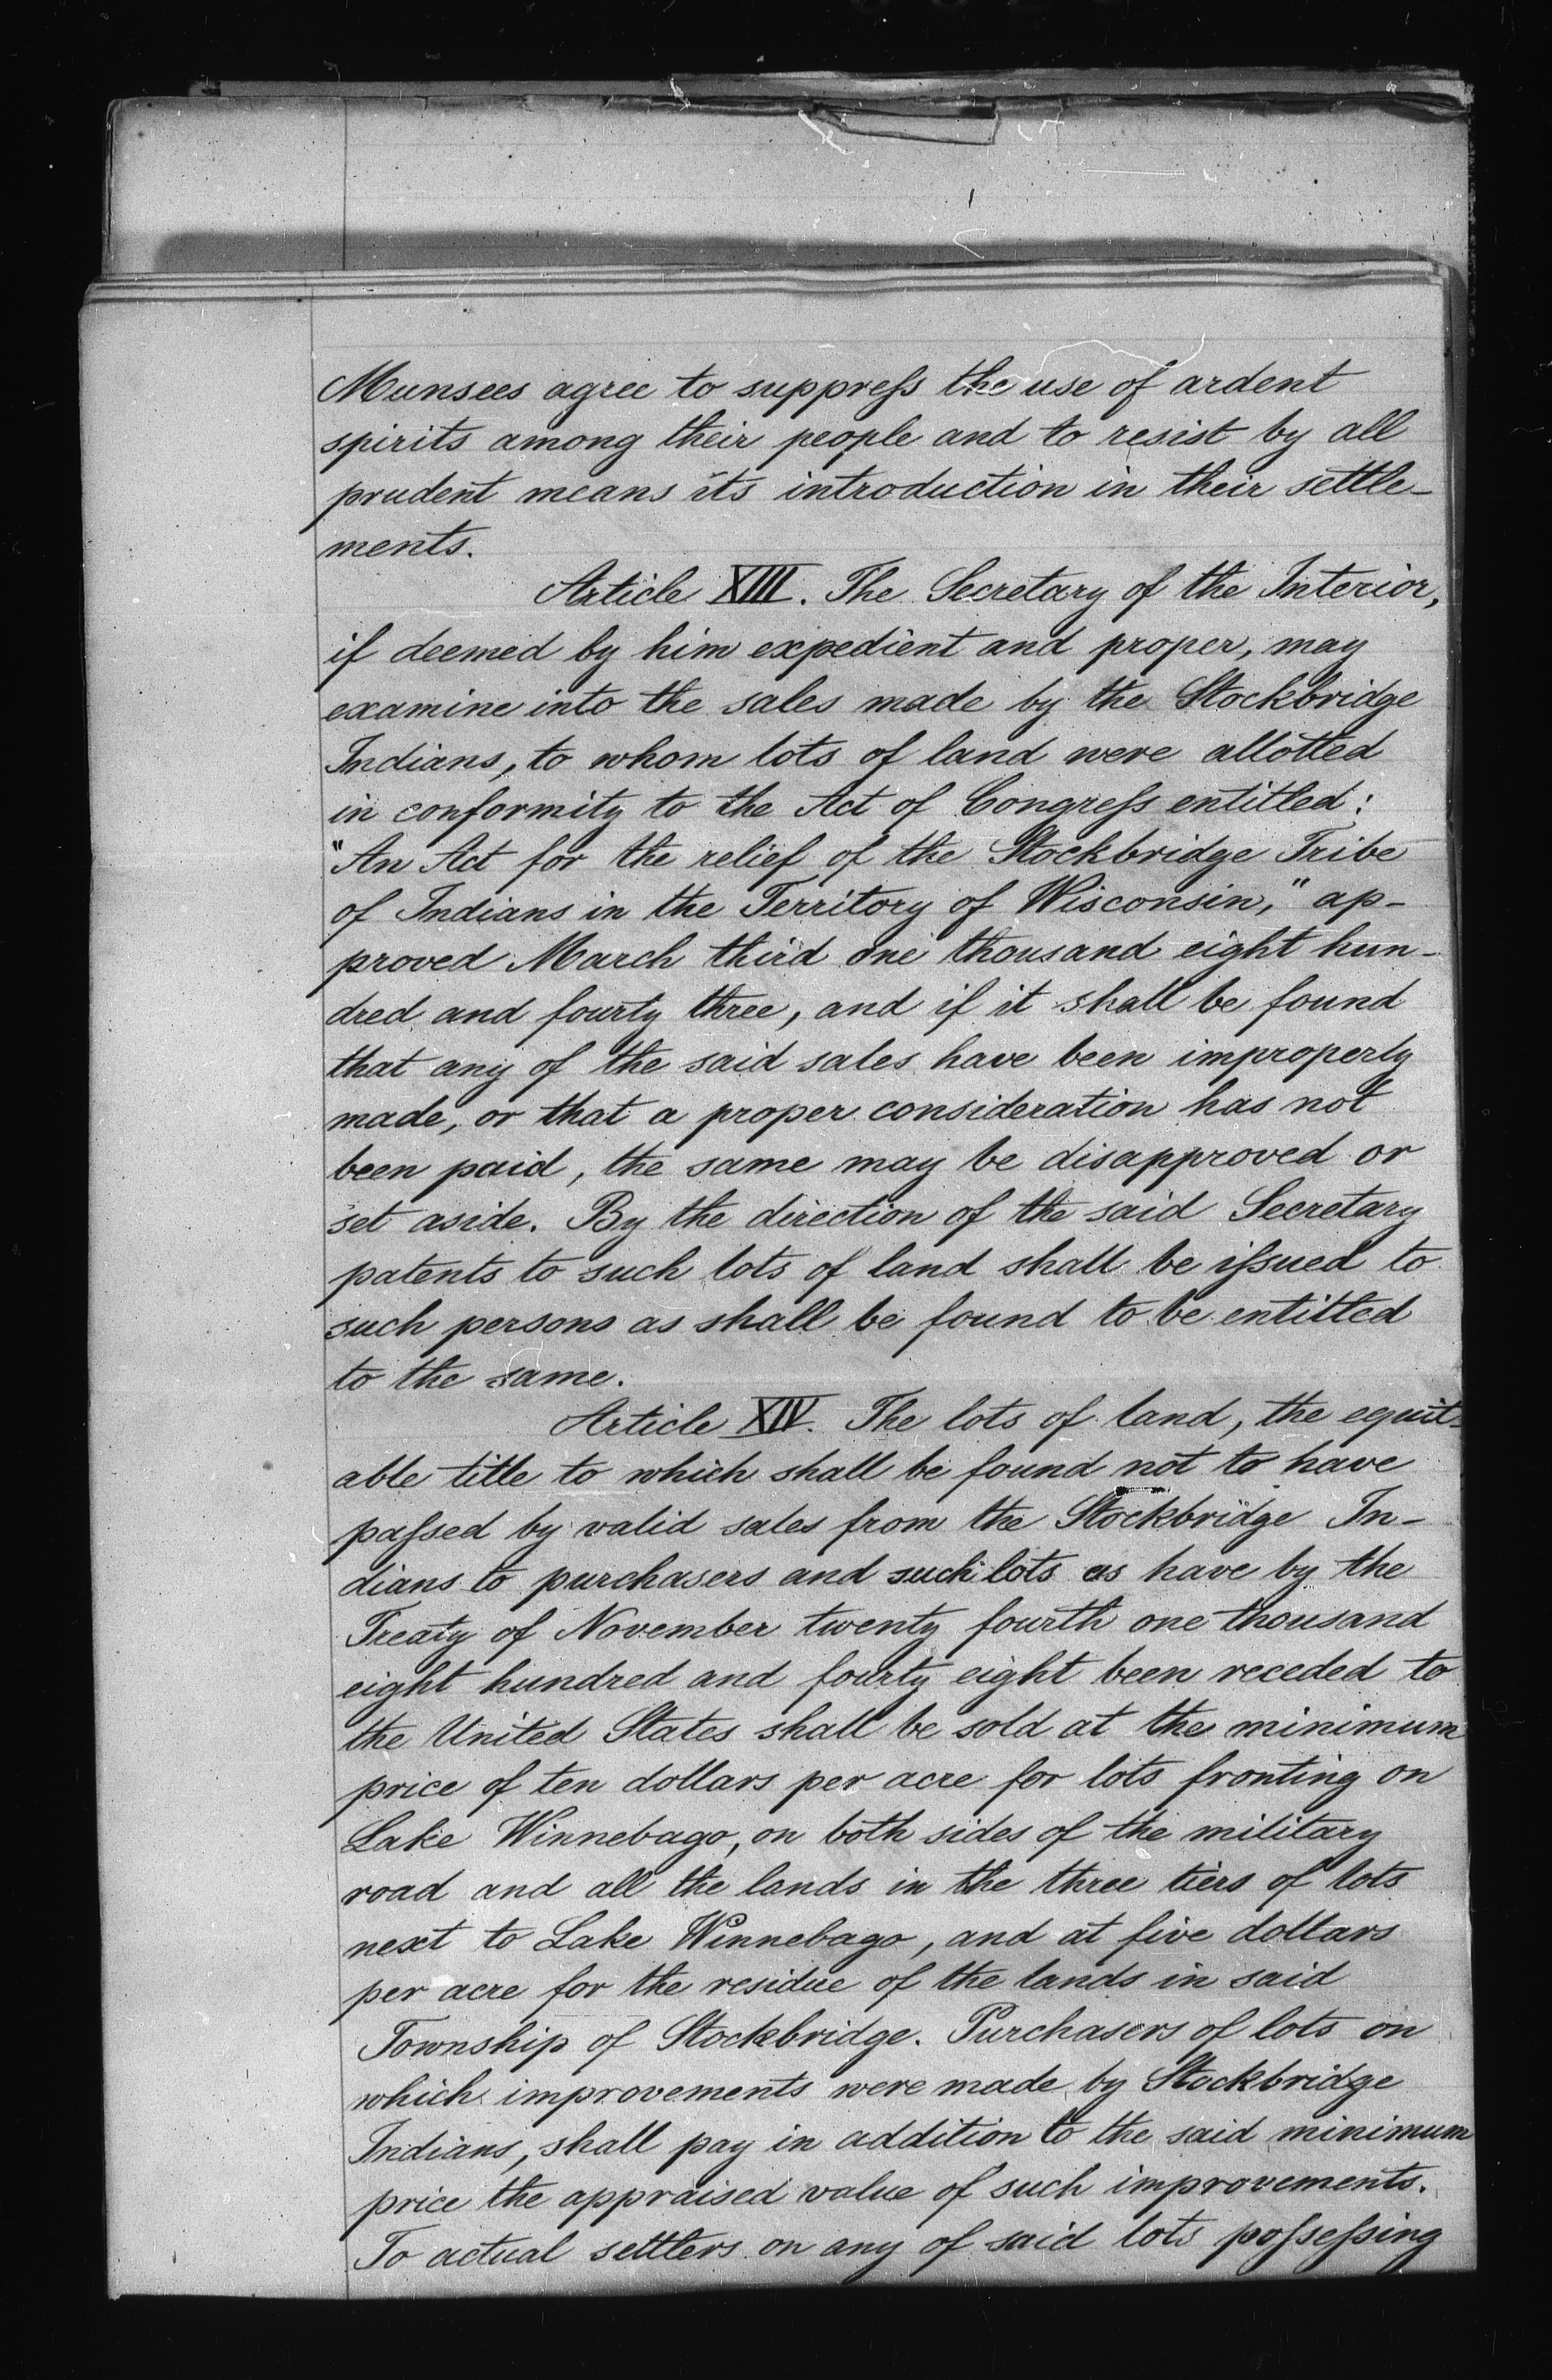 Munsees agree to suppress the use of ardent
spirits among their people and to resist by all
prudent means its introduction in their settle-
ments.
Article XIII. The Secretary of the Interior,
if deemed by him expedient and proper, may
examine into the sales made by the Stockbridge
Indians, to whom lots of land were allotted
in conformity to the Act of Congress entitled:
"An Act for the relief of the Stockbridge Tribe
of Indians in the Territory of Wisconsin," ap-
proved March third one thousand eight hun-
dred and fourty three, and if it shall be found
that any of the said sales have been improperly
made, or that a proper consideration has not
been paid, the same may be disapproved or
set aside. By the direction of the said Secretary
patents to such lots of land shall be issued to
such persons as shall be found to be entitled
to the same.
Article XIV. The lots of land, the equit-
able title to which shall be found not to have
passed by valid sales from the Stockbridge In-
dians to purchasers and such lots as have by the
Treaty of November twenty fourth one thousand
eight hundred and fourty eight been receded to
the United States shall be sold at the minimum
price of ten dollars per acre for lots fronting on
Lake Winnebago, on both sides of the military
road and all the lands in the three tiers of lots
next to Lake Winnebago, and at five dollars
per acre for the residue of the lands in said
Township of Stockbridge. Purchasers of lots on
which improvements were made by Stockbridge
Indians, shall pay in addition to the said minimum
price the appraised value of such improvements.
To actual settlers on any of said lots possessing